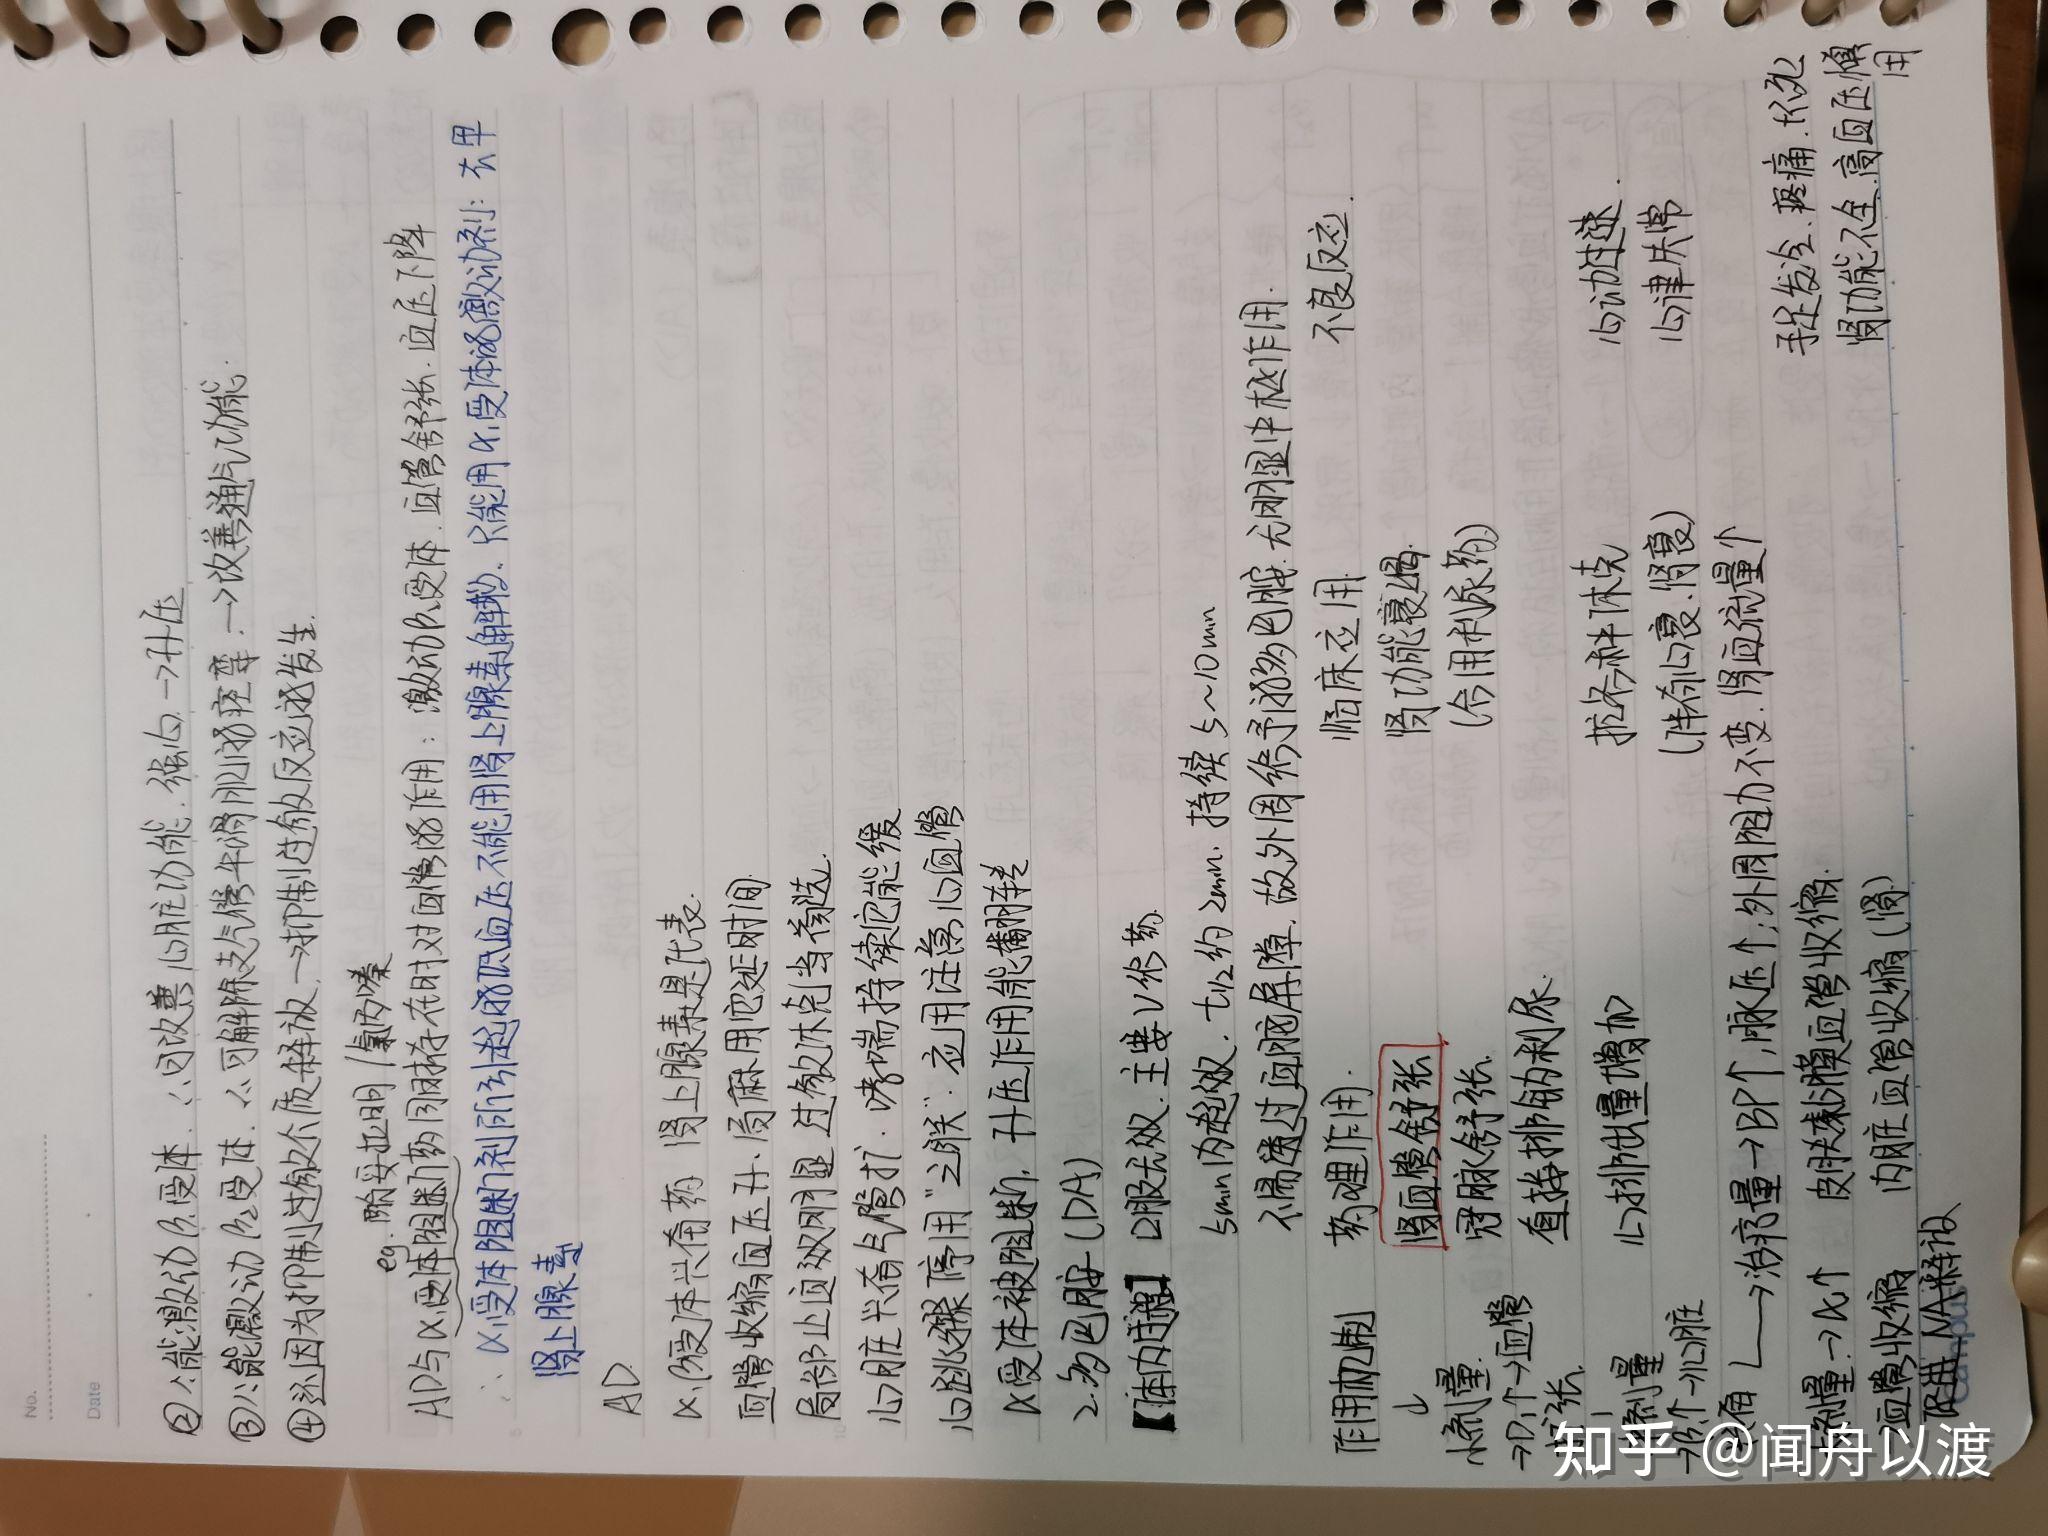 No.
Date
②∵能激动β1受体. ∴可改善心脏功能. 强心→升压
③∵能激动β2受体. ∴可解除支气管平滑肌的痉挛.→改善通气功能.
④还因为抑制过敏介质释放.→抑制过敏反应的发生.
eg. 酚妥拉明/氯丙嗪
AD与α受体阻断药同时存在时对血管的作用：激动β2受体. 血管舒张. 血压下降
∴ α1受体阻断剂所引起的低血压不能用肾上腺素解救. 只能用α1受体的激动剂：去甲
肾上腺素
AD.
α.β受体兴奋药 肾上腺素是代表.
血管收缩血压升. 局麻用它延时间.
局部止血效明显 过敏休克当首选.
心脏兴奋气管扩. 哮喘持续它能缓
心跳骤停用"三联". 应用注意心血管
α受体被阻断. 升压作用能翻转
2.多巴胺(DA)
【体内过程】 口服无效. 主要iv给药.
5min内起效. t1/2约2min. 持续5~10min
不易透过血脑屏障. 故外周给予的多巴胺. 无明显中枢作用.
作用机制 药理作用. 临床应用 不良反应.
↓ 肾血管舒张 肾功能衰竭.
小剂量. 冠脉舒张. (合用利尿药)
→D1↑→血管 直接排钠利尿.
扩张.
剂量 心排出量增加 拉各科休克 心动过速.
→β1↑→心脏 (伴有心衰.肾衰) 心律失常
兴奋 └→治疗量→BP↑,脉压↑;外周阻力不变.肾血流量↑
剂量→α↑ 皮肤黏膜血管收缩. 手足发冷.疼痛.坏死
→血管收缩 内脏血管收缩(肾) 肾功能不全.高血压慎
用
NA释放
Campus
知乎 @闻舟以渡